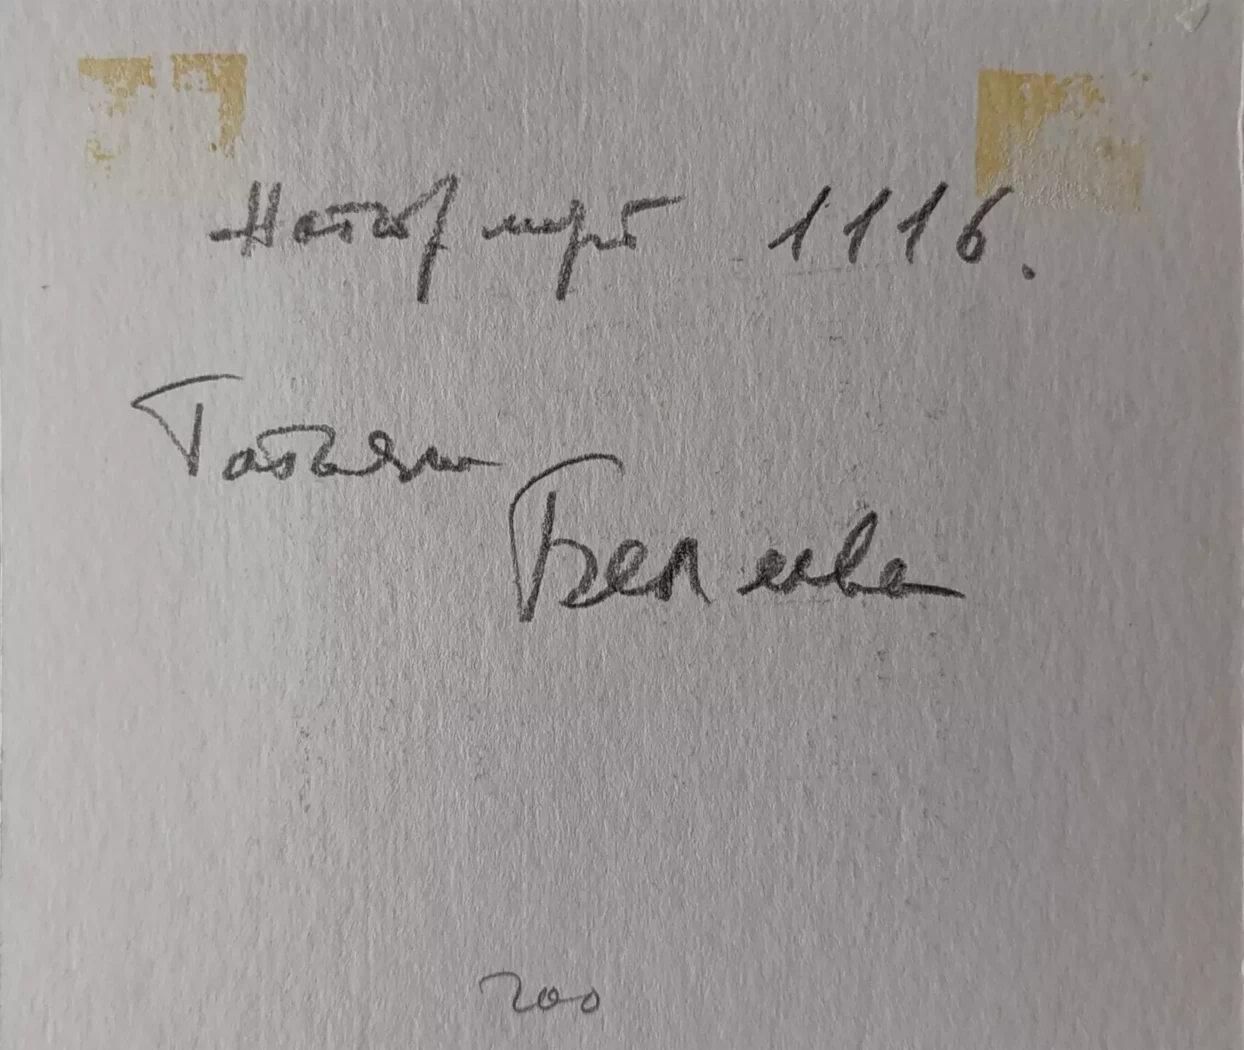 Натюрморт 1116.
Татьяна
Беляева
200